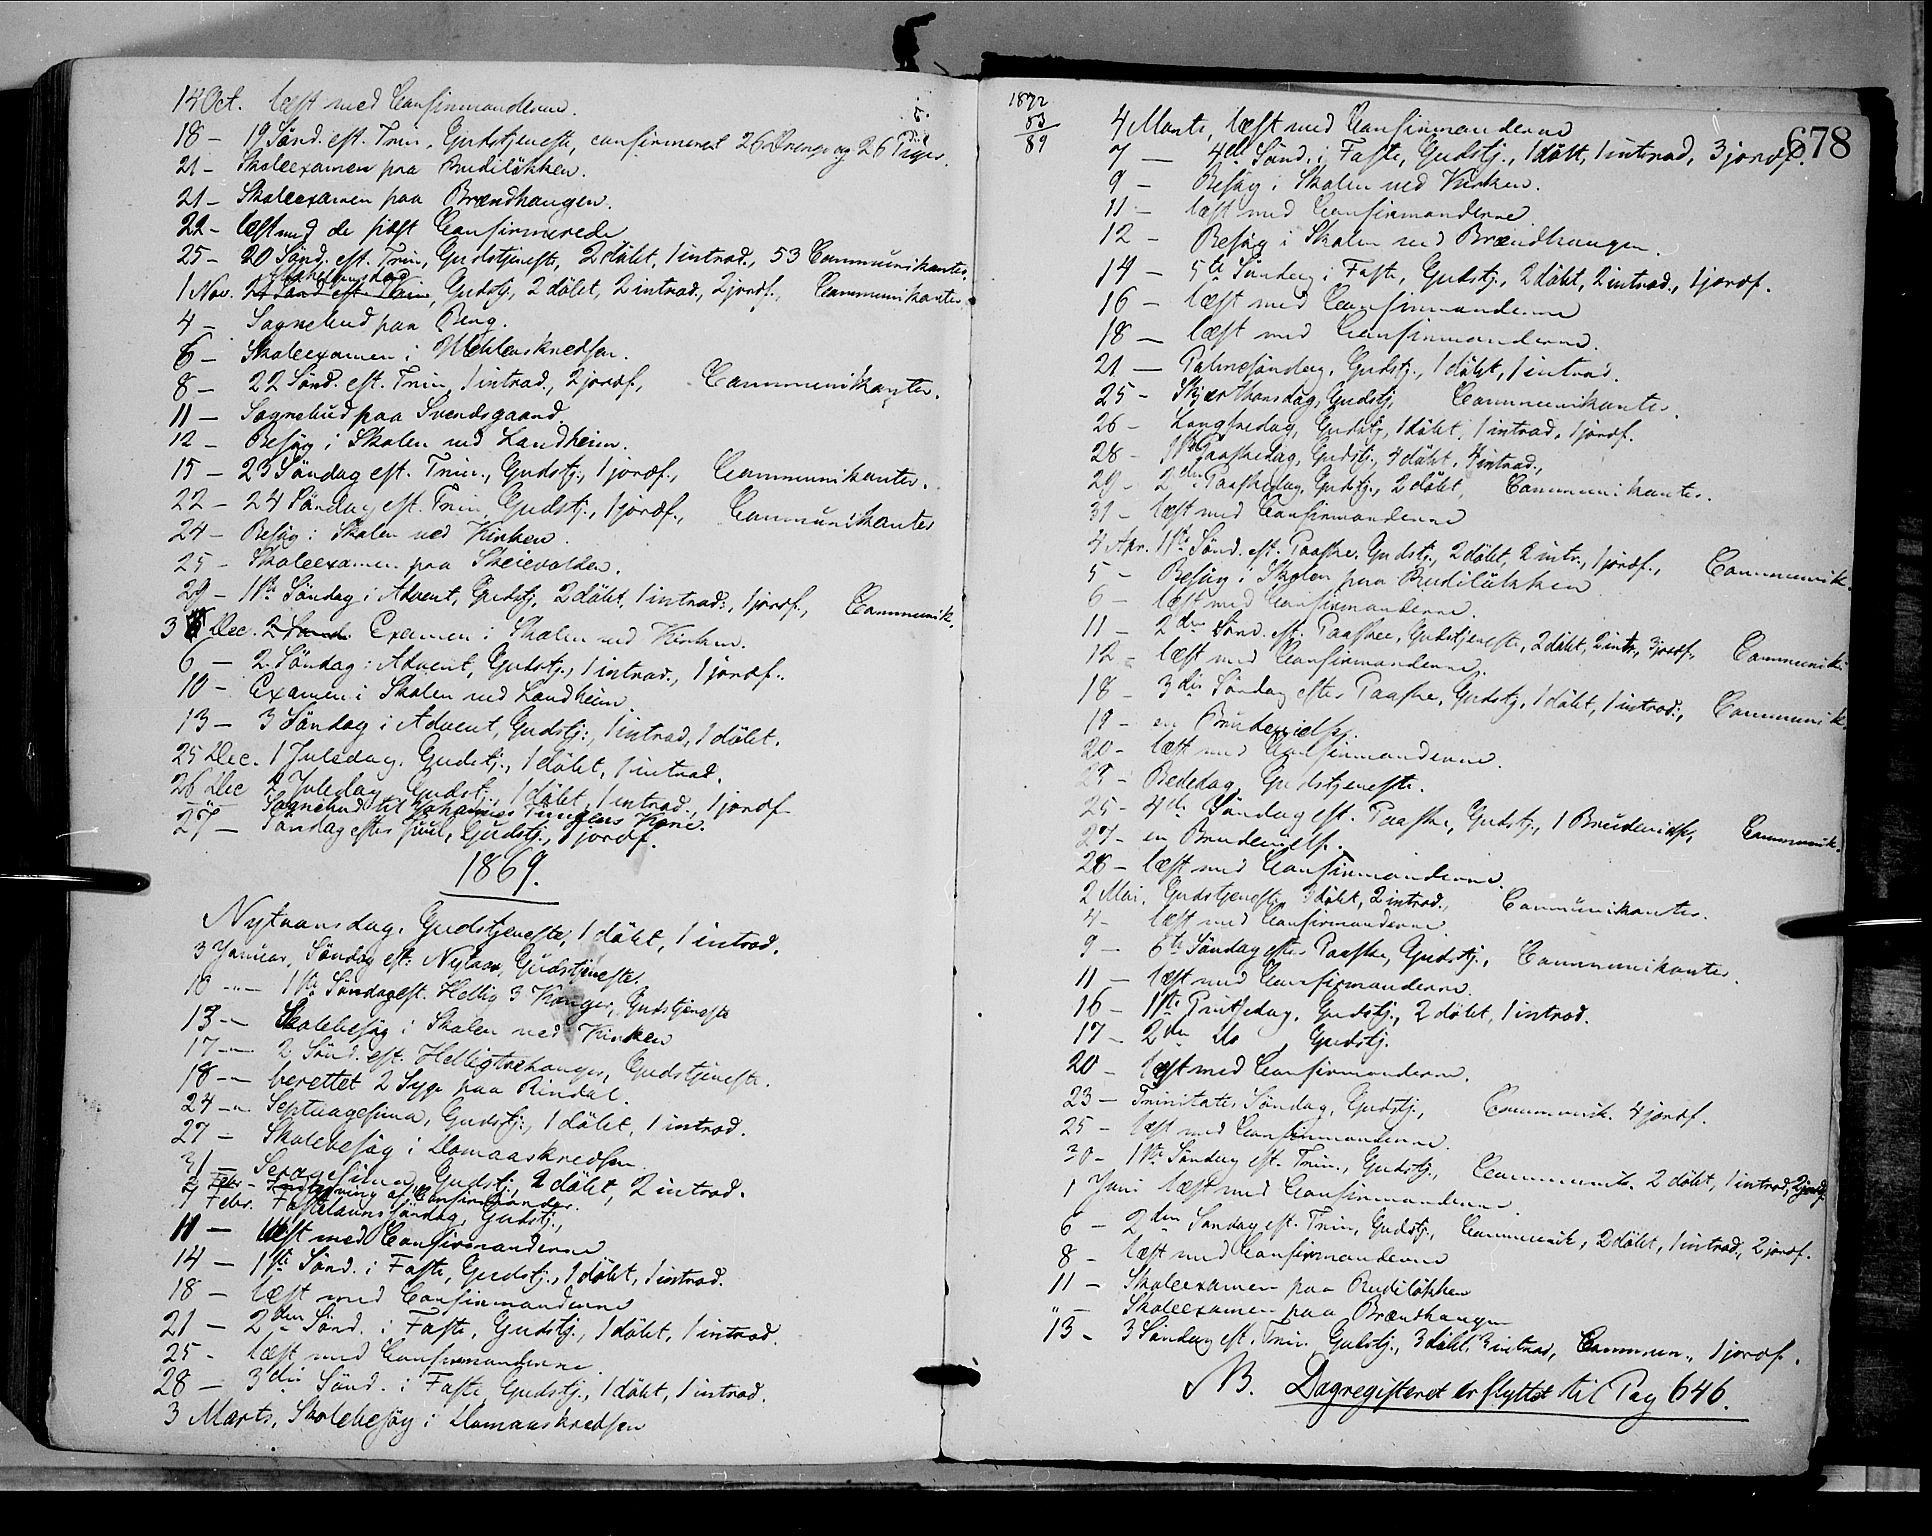 14 Oct. læst med Confirmanderne.
18 – 19 Sönd. eft. Trin, Gudstjeneste, confirmeret 26 Drenge og 26 Piger.
21 – Skoleexamen paa Rudilökken.
21 – Skoleexamen paa Brændhaugen.
22 – læst med de Confirmerede
25 – 20 Sönd. eft. Trin, Gudstjeneste, 2 döbt, 1 introd., 53 Communikanter
1 Nov. 21 Sönd eft Trin, Gudstj, 2 döbt, 2 introd., 2 jordf., Communikanter
4 – Sognebud paa Berg.
6 – Skoleexamen i
8 – 22 Sönd. eft. Trin, 1 introd., 2 jordf, Communikanter.
11 – Sognebud paa Svendsgaard
12 – Besög i Skolen ved Landheim.
15 – 23 Söndag eft. Trin., Gudstj., 1 jordf., Communikanter.
22 – 24 Söndag eft. Trin, Gudstj., 1 jordf., Communikanter
24 – Besög i Skolen ved Kirken.
25 – Skoleexamen paa Skeievolden.
29 – 1ste Söndag i Advent, Gudstj, 2 döbt, 1 introd., 1 jordf., Communik.
3 Dec. 2 Sönd. Examen i Skolen ved Kirken.
6 – 2. Söndag i Advent, Gudstj., 1 introd., 1 jordf.
10 – Examen i Skolen ved Landheim.
13 – 3 Söndag i Advent, Gudstj:, 1 introd, 1 döbt.
25 Dec. 1 Juledag. Gudstj., 1 döbt, 1 introd.
26 Dec 2 Juledag, Gudst., 1 döbt, 1 introd., 1 jordf
" – Sognebud til Johannes Kone.
27 – Söndag efter Juul, Gudstj., 1 jordf.
1869.
Nytaarsdag. Gudstjeneste, 1 döbt, 1 introd.
3 Januar, Söndag eft: Nytaar, Gudstjeneste.
10 –"– 1ste Söndag eft. Hellig 3 Konger, Gudstjeneste
13 – Skolebesög i Skolen ved Kirken
17 –"– 2 Sönd. eft. Helligtrekonger, Gudstjeneste.
18 –"– berettet 2 Syge paa Rindal.
24 –"– Septuagesima, Gudstj:, 1 döbt, 1 introd.
27 – Skolebesög i Domaaskredsen
31 – Sexagesima Gudstj, 2 döbt, 2 introd.
Febr – Indskrivning af Confirmander.
7 Febr. Fastelaunssöndag, Gudstj.,
11 – læst med Confirmanderne
14 – 1ste Sönd. i Faste, Gudstj., 1 döbt, 1 introd.
18 – læst med Confirmanderne
21 – 2den Sönd. i Faste, Gudstj., 1 döbt, 1 introd.
25 – læst med Confirmanderne
28 – 3die Sönd. i Faste, Gudstj., 1 döbt, 1 introd.
3 Marts, Skolebesög i Domaaskredsen
1872
83
89
678
4 Marts, læst med Confirmanderne
7 – 4de Sönd. i Faste, Gudstj., 1 döbt, 1 introd, 3 jordf.
9 – Besög i Skolen ved Kirken.
11 – læst med Confirmanderne
12 – Besög i Skolen ved Brændhaugen.
14 – 5te Söndag i Faste, Gudstj., 2 döbt, 2 introd., 1 jordf.
16 – læst med Confirmanderne
18 – læst med Confirmanderne.
21 – Palmesöndag. Gudstj., 1 döbt, 1 introd.
25 – Skjærthorsdag, Gudstj, Communikanter.
26 – Langfredag, Gudstj, 1 döbt, 1 introd, 1 jordf.
28 – 1ste Paaskedag, Gudstj., 4 döbt, 4 introd.,
29 – 2den Paaskedag, Gudstj., 2 döbt, Communikanter.
31 – læst med Confirmanderne
4 Apr. 1ste Sönd. eft. Paaske. Gudstj., 2 döbt, 2 intr., 1 jordf., Communik.
5 – Besög i Skolen paa Rudilökken
6 – læst med Confirmanderne.
11 – 2den Sönd. eft. Paaske, Gudstjeneste, 2 döbt, 2 intr., 3 jordf., Communik.
12 – læst med Confirmanderne.
18 – 3die Söndag efter Paaske, Gudstj, 1 döbt, 1 introd., Communik.
19 – en Brudevielse.
20 – læst med Confirmanderne.
23 – Bededag, Gudstjeneste.
25 – 4de Söndag eft. Paaske, Gudstj., 1 Brudevielse, Communik.
27 – en Brudevielse.
28 – læst med Confirmanderne.
2 Mai. Gudstjeneste, 3 döbt, 2 introd., Communikanter.
4 – læst med Confirmanderne
9 – 6te Söndag efter Paaske, Gudstj., Communikanter.
11 – læst med Confirmanderne
16 – 1ste Pintsedag, Gudstj., 2 döbt, 1 introd.
17 – 2den Do , Gudstj.
20 – læst med Confirmanderne.
23 – Trinitatis Söndag, Gudstj., Communik. 4 jordf.
25 – læst med Confirmanderne
30 – 1ste Söndag eft. Trin., Gudstj., Communik. 2 döbt, 1 introd., 2 jordf.
1 Juni læst med Confirmanderne.
6 – 2den Söndag eft. Trin, Gudstj., Communik, 2 döbt, 1 introd, 2 jordf.
8 – læst med Confirmanderne
11 – Skoleexamen paa Rudilökken
" – Skoleexamen paa Brændhaugen
13 – 3 Söndag eft. Trin. Gudstj., 3 döbt, 3 introd, Commun., 1 jordf.
NB. Dagregisteret er flyttet til Pag 646.